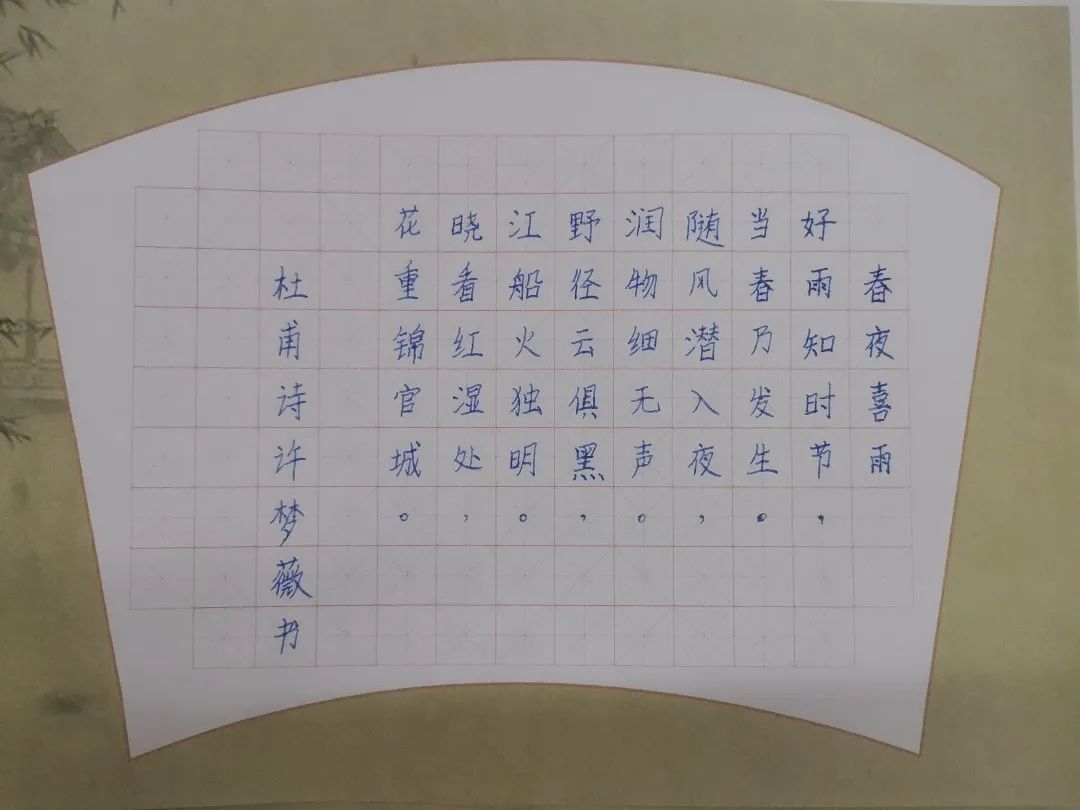 春夜喜雨
好雨知时节，
当春乃发生。
随风潜入夜，
润物细无声。
野径云俱黑，
江船火独明。
晓看红湿处，
花重锦官城。
杜甫诗许梦薇书